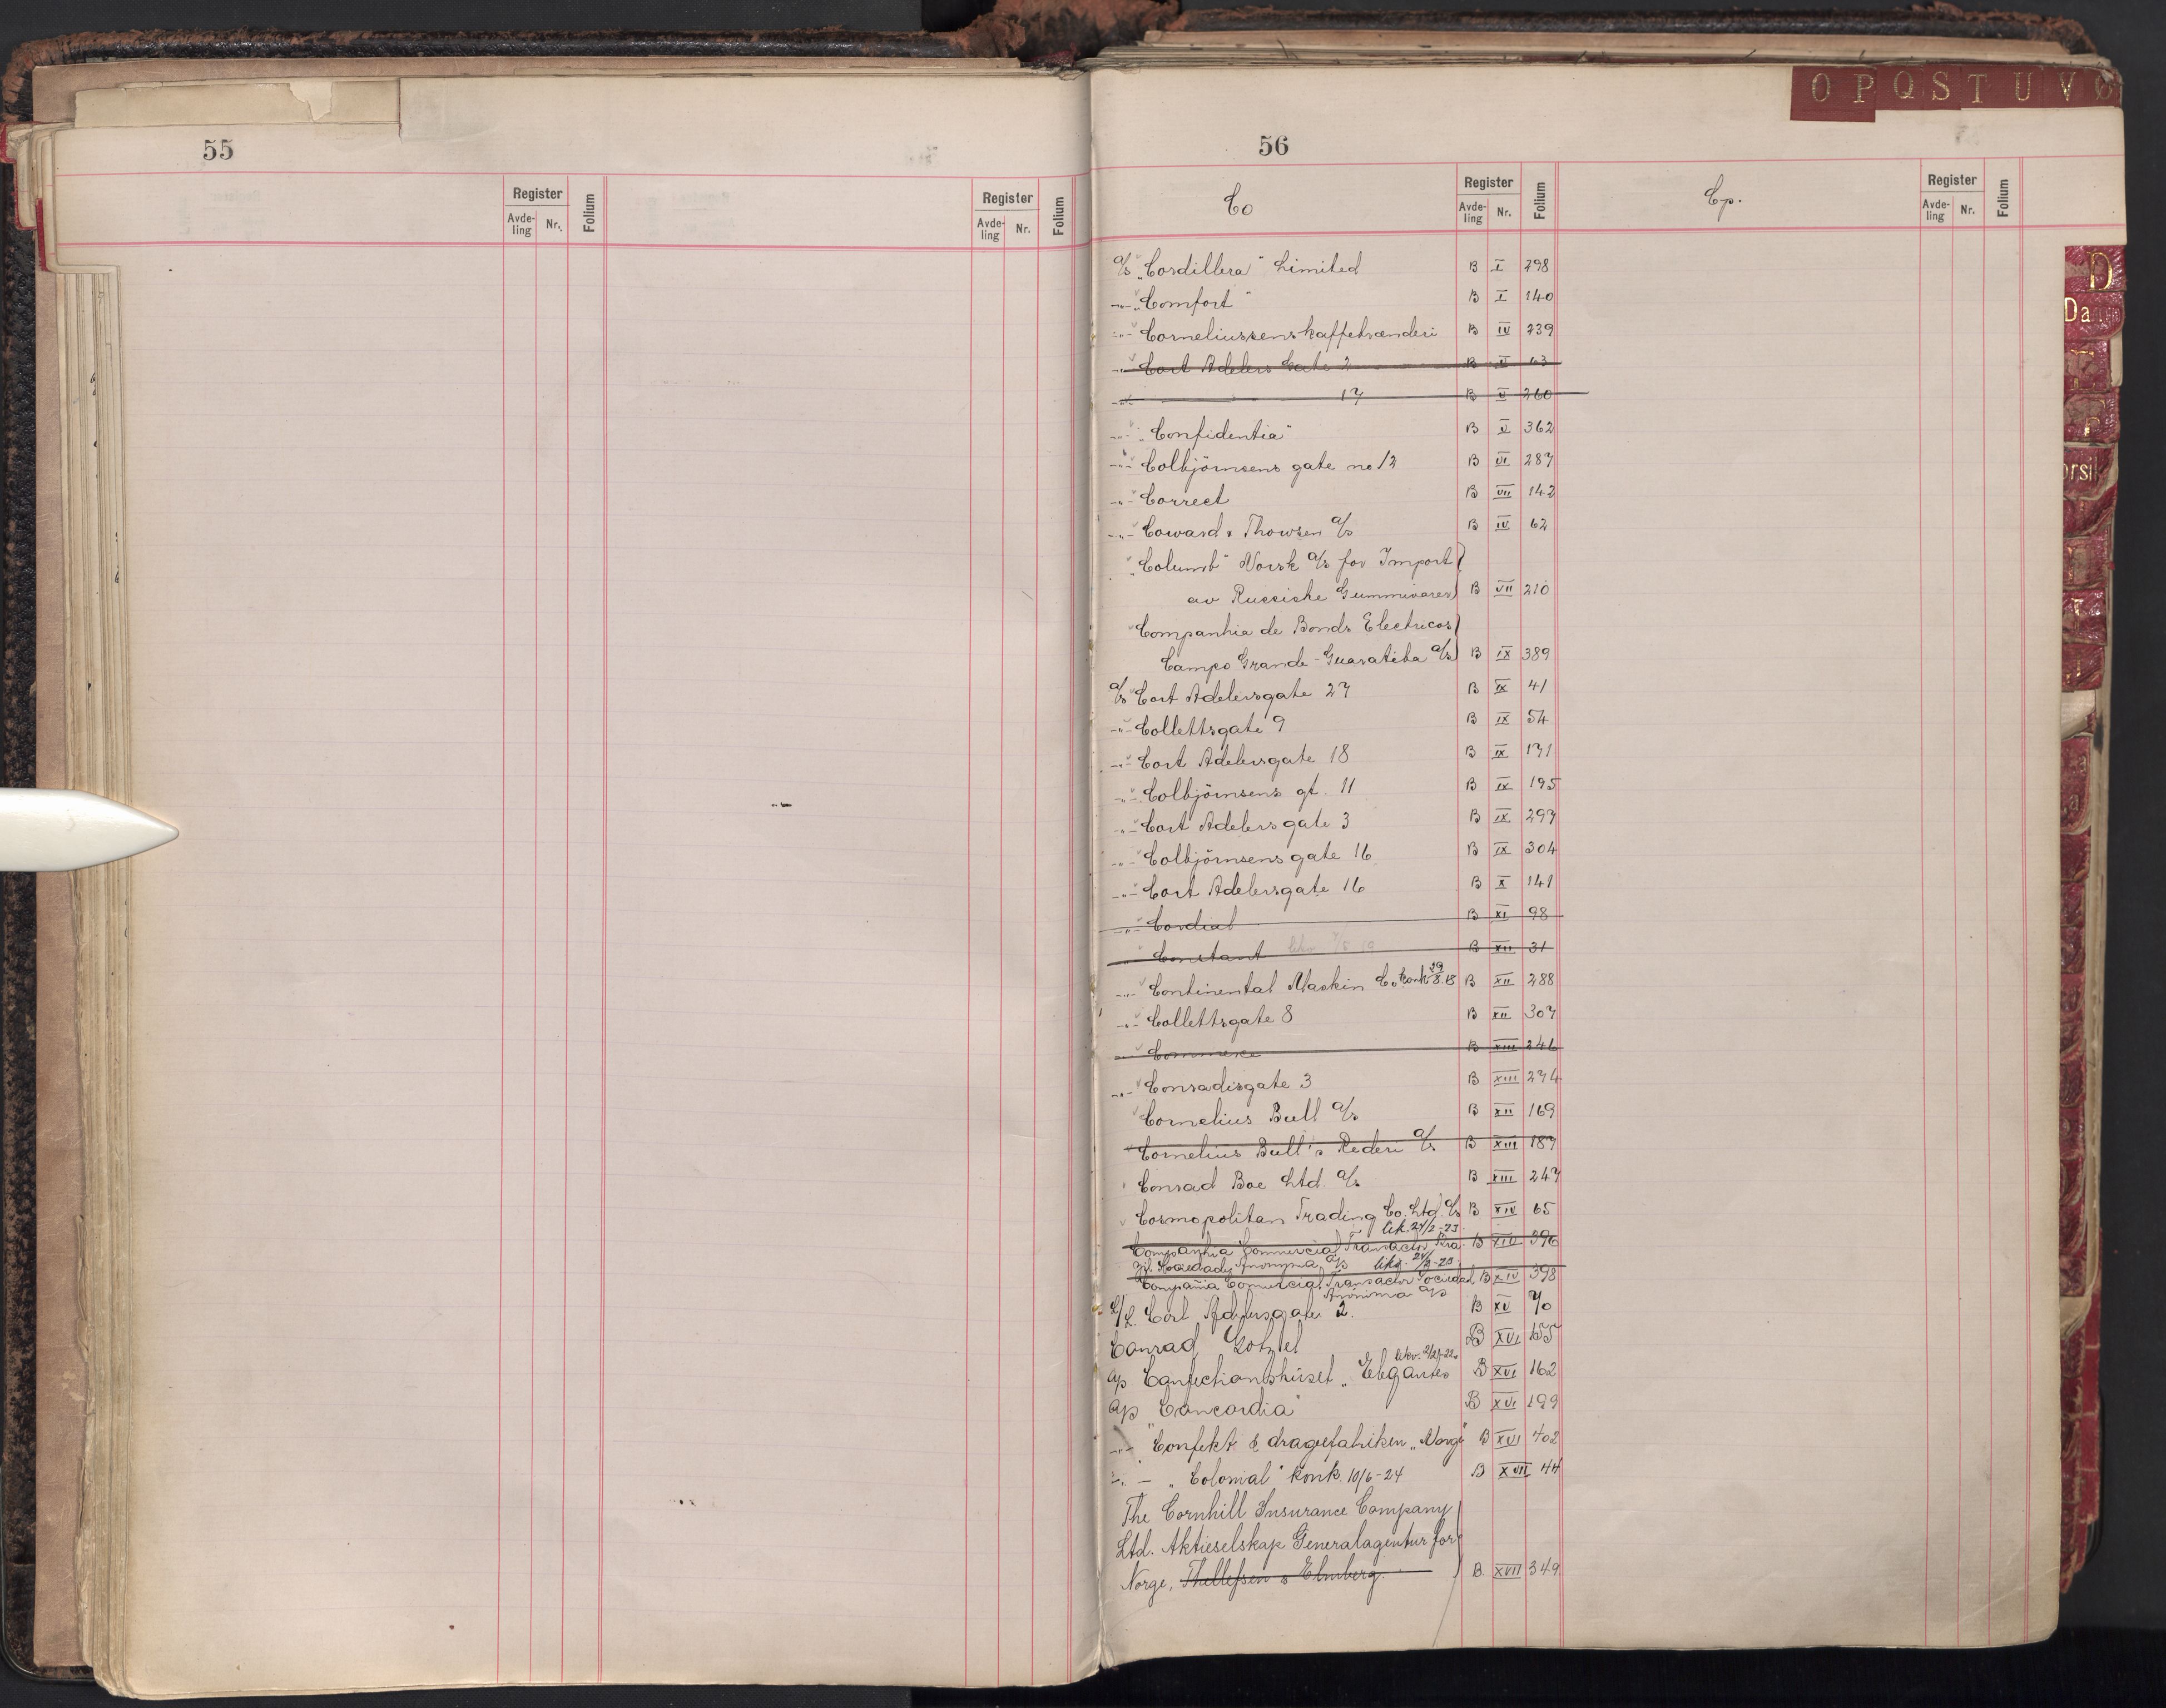 O P Q S T U V Ø
55
Register
Avde-
ling
Nr.
Folium
Register
Avde-
ling
Nr.
Folium
56
Co
Register
Avde-
ling
Nr.
Folium
Cp.
Register
Avde-
ling
Nr.
Folium
A/s "Cordillera" Limited B I 298
-"- "Comfort" B I 140
-"- Corneliussens kaffebrænderi B IV 239
-"- Cort Adelers Gate 2 B V 63
-"- 17 B V 260
-"- "Confidentia" B V 362
-"- Colbjörnsens gate no 12 B VI 287
-"- Correct B VII 142
-"- Coward & Thowsen A/s B IV 62
"Columb" Norsk A/s for Import
av Russiske Gummivarer B VII 210
Companhia de Bonds Electricos
Campo Grande - Guaratiba A/s B IX 389
A/s Cort Adelersgate 27 B IX 41
-"- Collettsgate 9 B IX 54
-"- Cort Adelersgate 18 B IX 171
-"- Colbjörnsens gt. 11 B IX 195
-"- Cort Adelersgate 3 B IX 297
-"- Colbjörnsens gate 16 B IX 304
-"- Cort Adelersgate 16 B X 141
-"- Cordial B XI 98
-"- Constant B XII 31
-"- Continental Maskin Co. konk 29/8.18 B XII 288
-"- Collettsgate 8 B XII 307
-"- Commerce B XIII 246
-"- Conradisgate 3 B XIII 274
Cornelius Bull A/s B XII 169
Cornelius Bull's Rederi A/s B XIII 187
Conrad Boe Ltd. A/s B XIII 247
Cosmopolitan Trading Co. Ltd. A/s B XIV 65
Companhia Commercial Transactor B XIV 396
Sociedade Anonyma A/s
Compañia Comercial Transactor Sociedad B XIV 398
Anónima A/s
A/L. Cort Adelersgate 2. B XV 70
Conrad B XVI 155
A/s Confectionshuset "Elegante" B XVI 162
A/s "Concordia" B XVI 199
-"- Confekt & drageefabriken "Norge" B XVI 402
-"- "Colonial" konk. 10/6-24 B XVII 44
The Cornhill Insurance Company
Ltd. Aktieselskap Generalagentur for
Norge, Thellefsen & Elmberg. B. XVII 349
D
Da